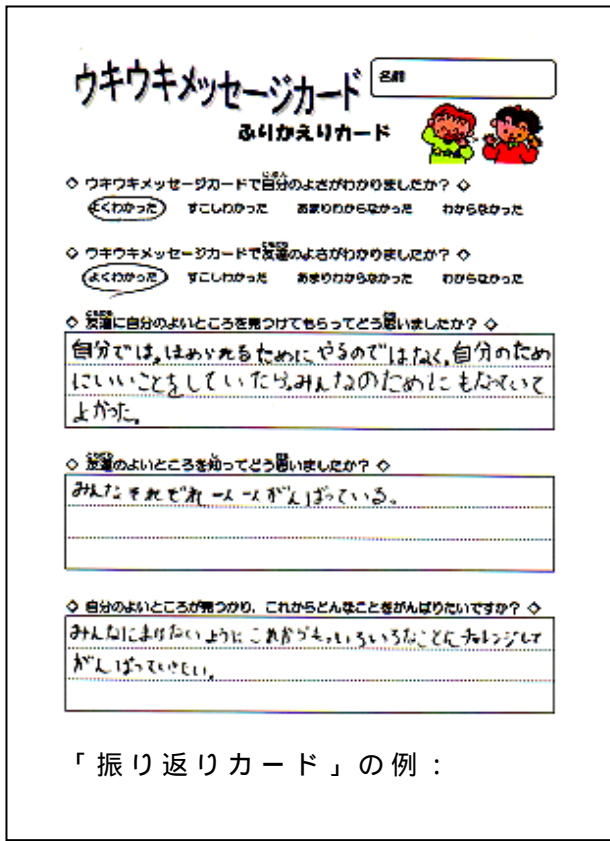 ウキウキメッセージカード
名前
ふりかえりカード
◇ ウキウキメッセージカードで自分のよさがわかりましたか？ ◇
よくわかった すこしわかった あまりわからなかった わからなかった
◇ ウキウキメッセージカードで友達のよさがわかりましたか？ ◇
よくわかった すこしわかった あまりわからなかった わからなかった
◇ 友達に自分のよいところを見つけてもらってどう思いましたか？ ◇
自分では、ほめられるためにやるのではなく、自分のため
にいいことをしていたら、みんなのためにもなっていて
よかった。
◇ 友達のよいところを知ってどう思いましたか？ ◇
みんなそれぞれ一人一人がんばっている。
◇ 自分のよいところが見つかり、これからどんなことをがんばりたいですか？ ◇
みんなにまけないようにこれからもっといろいろなことにチャレンジして
がんばっていきたい。
「振り返りカード」の例：